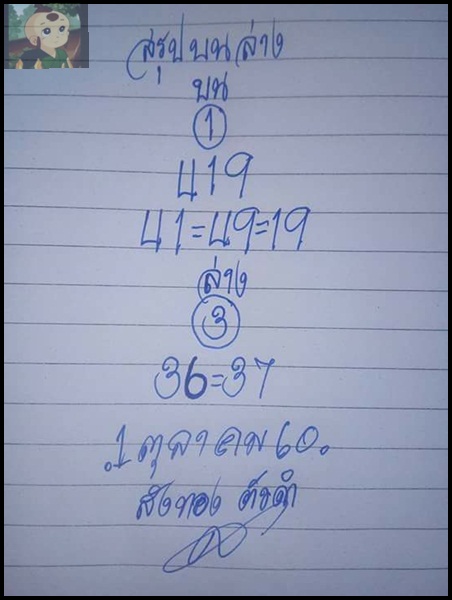 สรุปบนล่าง
บน
1
419
41=49=19
ล่าง
3
36=37
1 ตุลาคม 60.
สังทอง